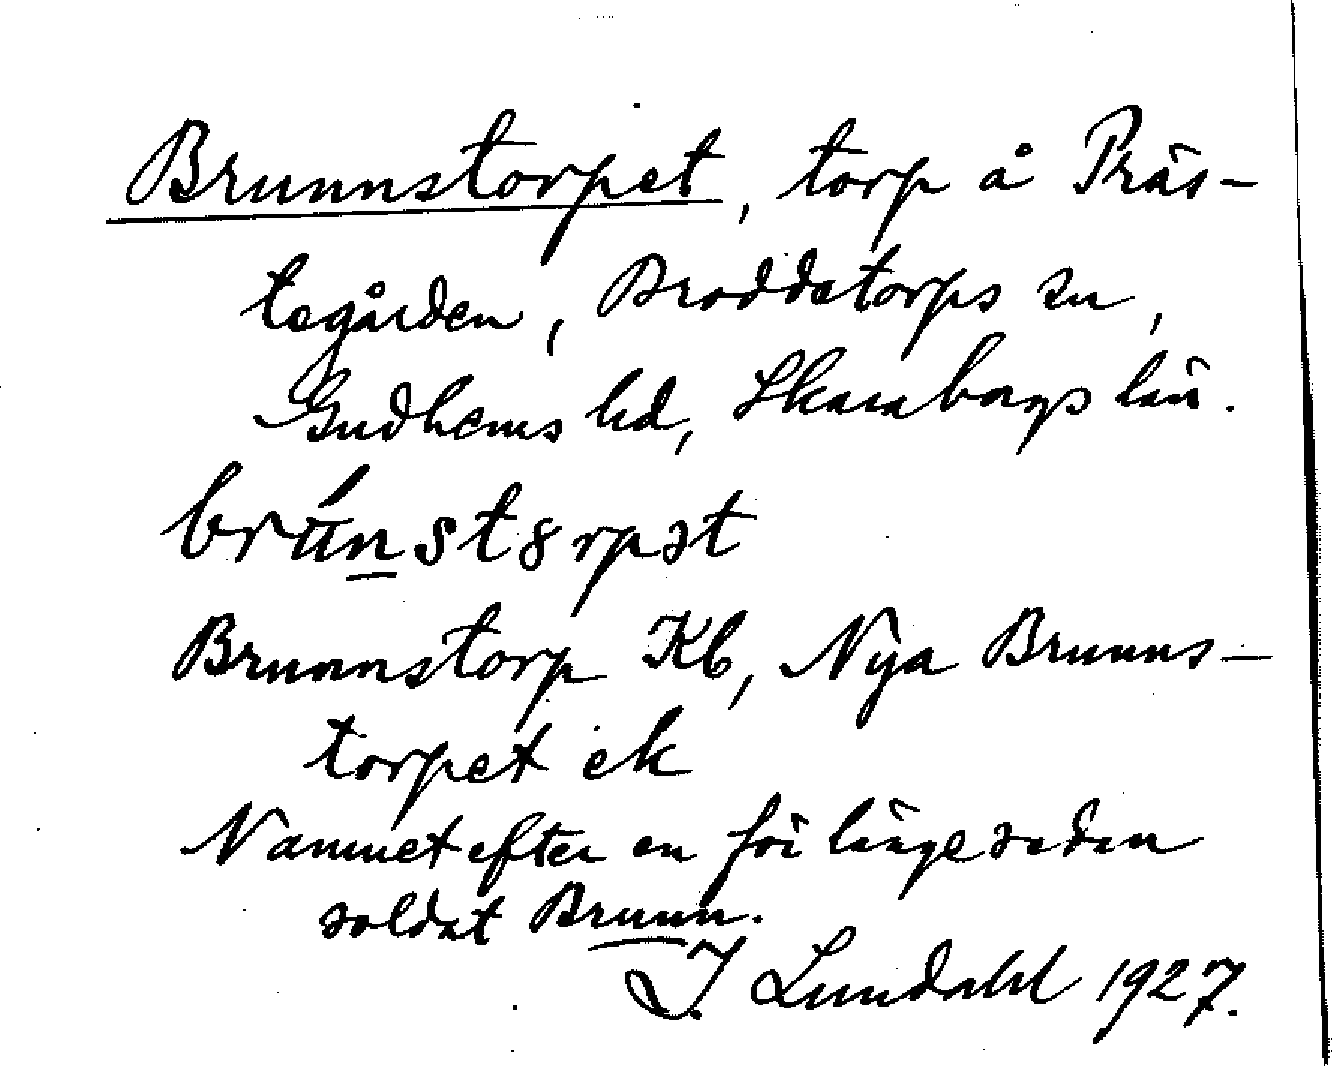 Brunnstorpet, torp å Präs-
tegården, Broddetorps sn,
Gudhems hd, Skaraborgs län.
brúnst8rpət
Brunnstorp Kb, Nya Brunns-
torpet ek
Namnet efter en för länge sedan
soldat Brunn.
I. Lundahl 1927.